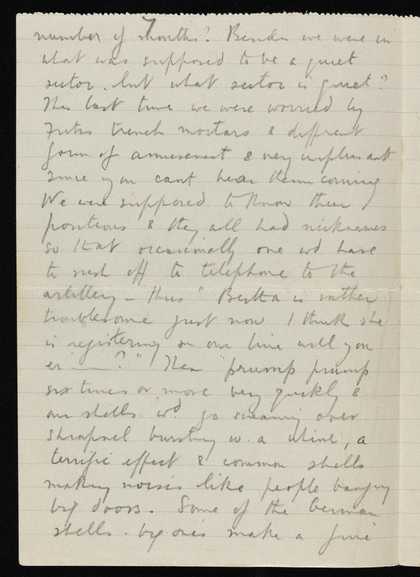 number of months? Besides we were in
what was supposed to be a quiet
sector. but what sector is quiet?
This last time we were worried by
Fritz's trench mortars & different
form of amusement & very unpleasant
since you cant hear them coming
We were supposed to know their
positions & they all had nicknames
so that occasionally one wd have
to rush off to telephone to the
artillery - thus "Bertha is rather
troublesome just now I think she
is registering on our line will you
er ——?" Then prump prump
six times or more very quickly &
our shells wd go screaming over
shrapnel bursting w. a whine, a
terrific effect & common shells
making noises like people banging
big doors. Some of the German
shells. big ones make a